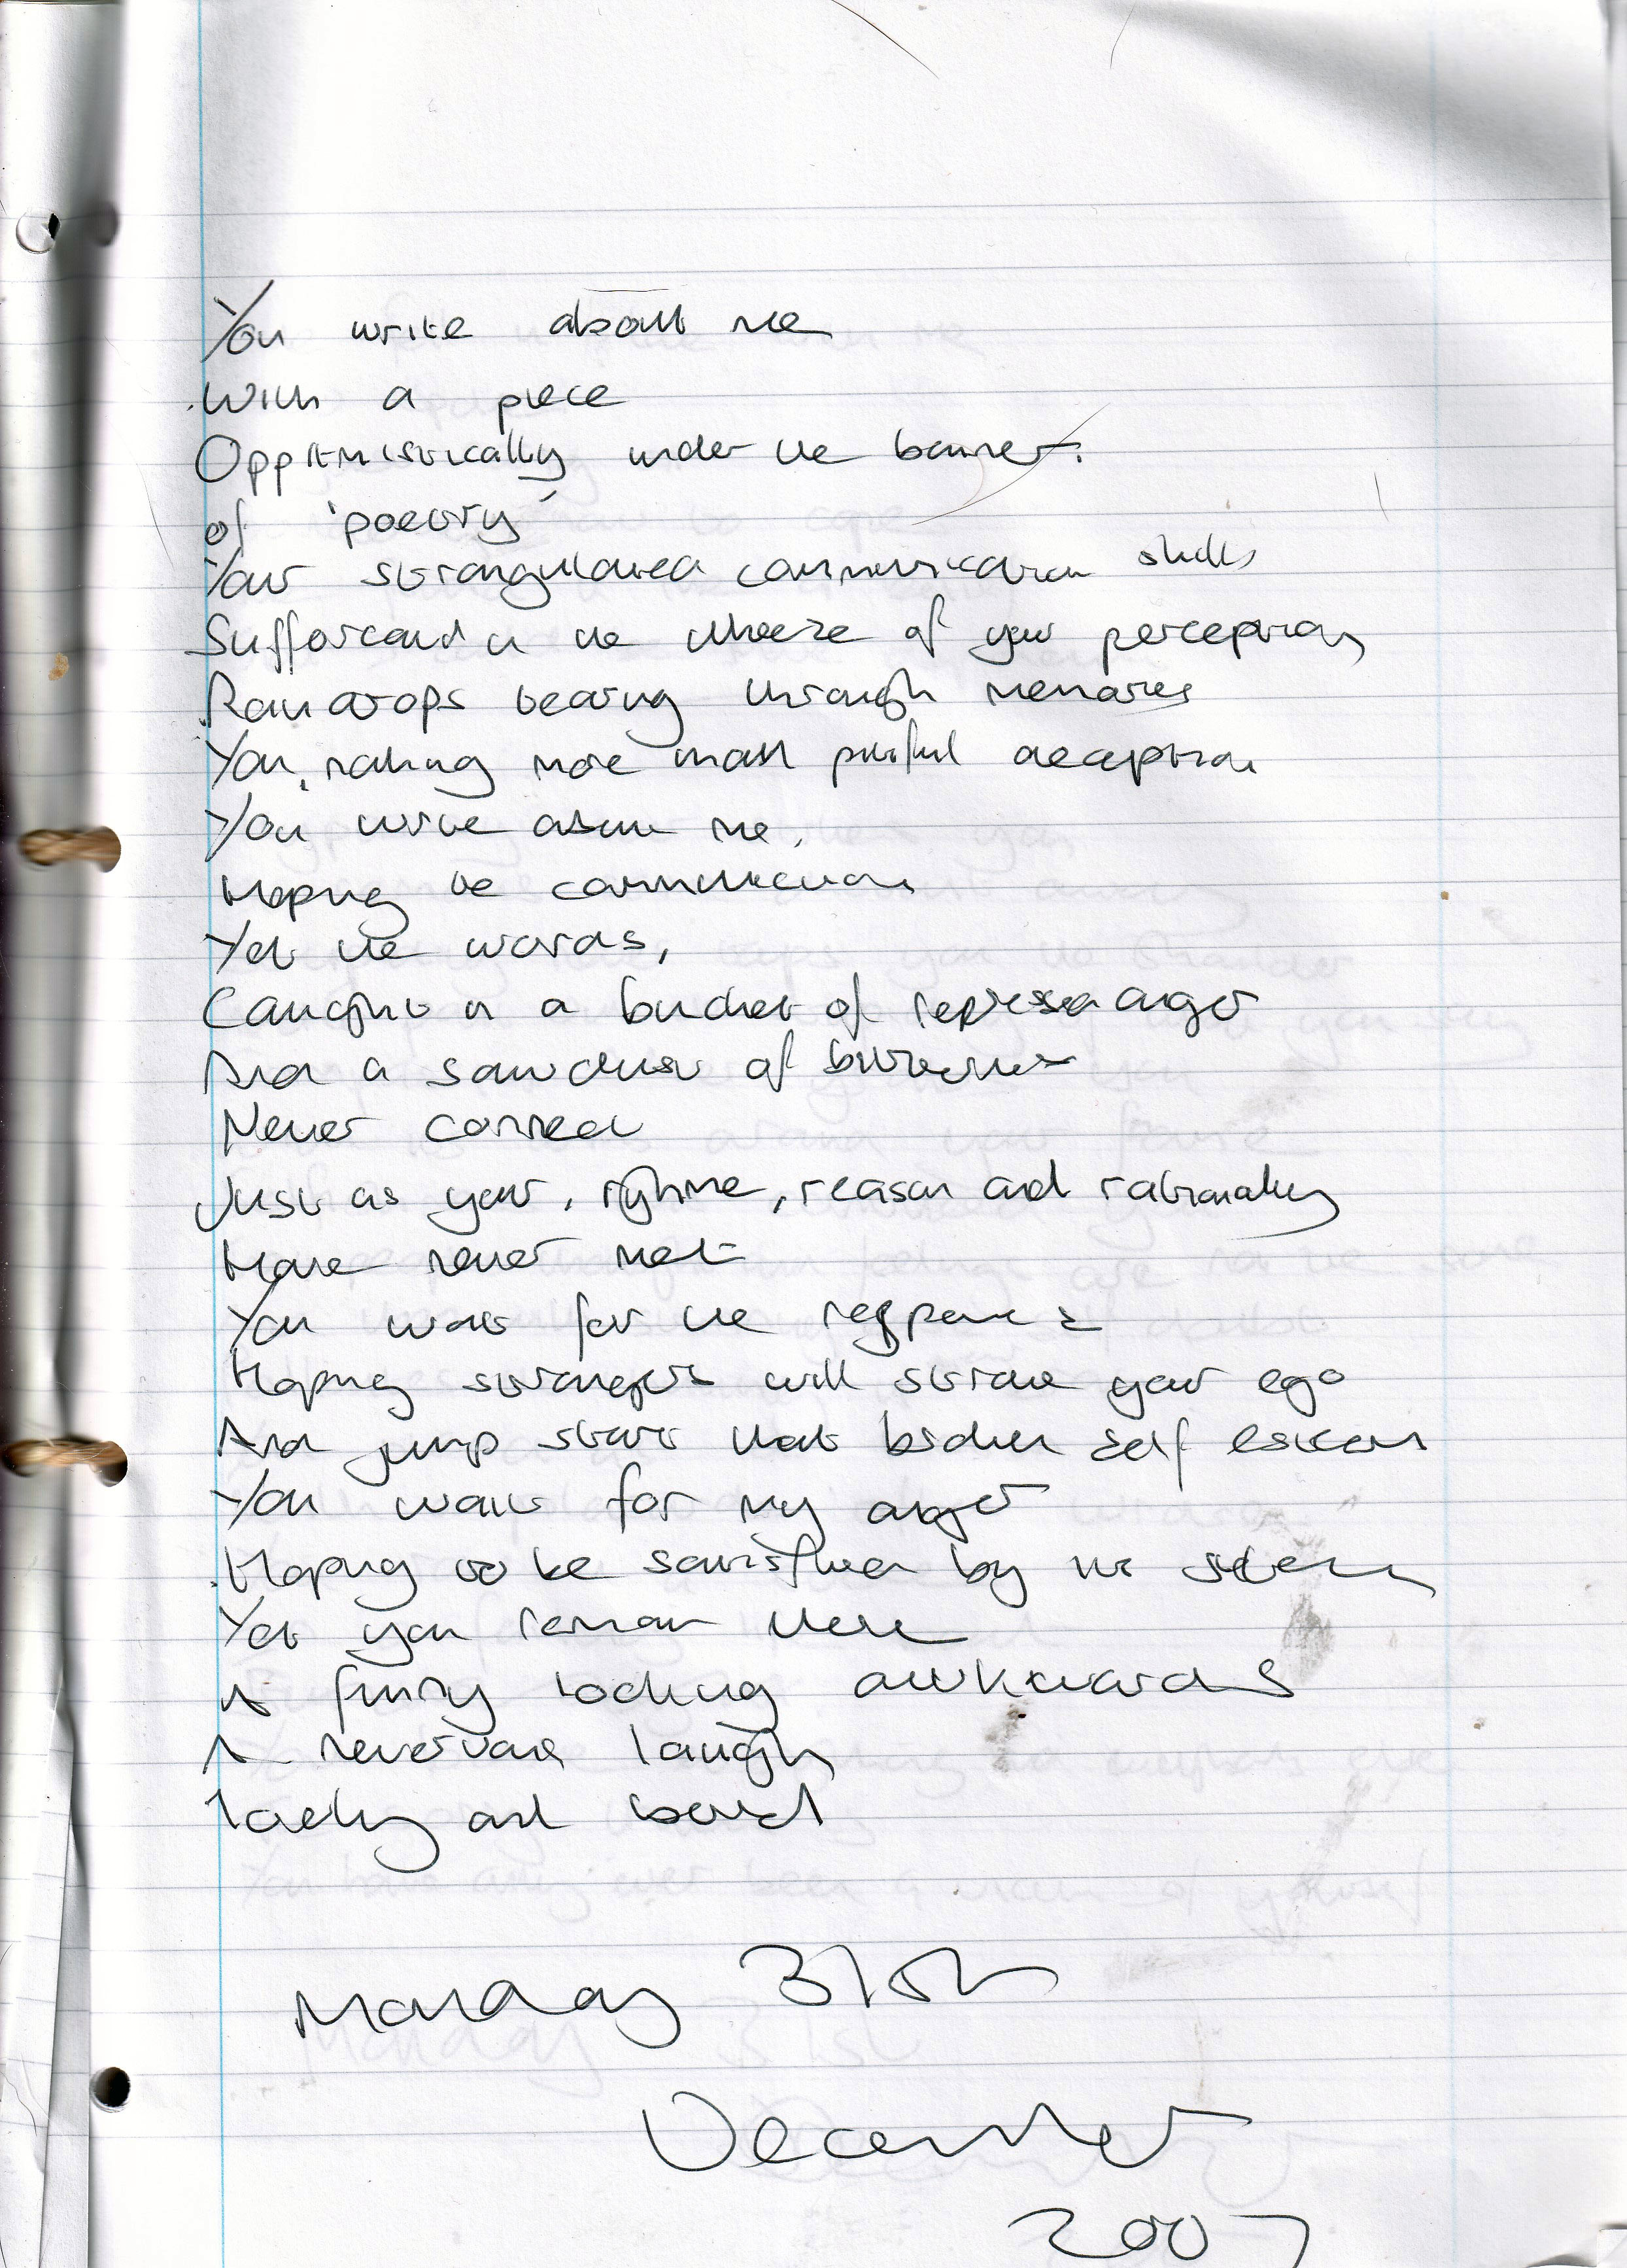 You write about me
With a piece
Opptimistically under the banner
of 'poetry'
Your strangulated communication skills
Sufforcated in the wheeze of your perception
Rain drops tearing through memories
You, making more than pitiful deception
You write about me,
Hoping the communication
Yet the words,
Caught in a bucket of repressed anger
And a sawdust of bitterness
Never connect
Just as your, rhyme, reason and rationality
Have never met
You wait for the response
Hoping strangers will stroke your ego
And jump start that broken self esteem
You wait for my anger
Hoping to be satisfied by its
Yet you remain there
A funny looking awkwards
A laugh
and bored
Monday 31st
December
2007